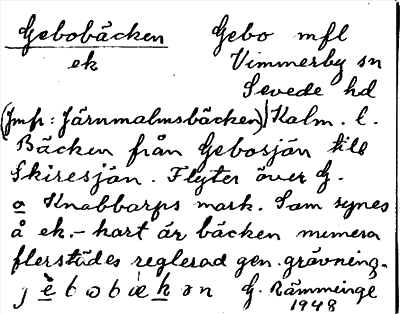 Gebobäcken Gebo mfl
ek Vimmerby sn
Sevede hd
(Jmfr: Järnmalmsbäcken) Kalm. l.
Bäcken från Gebosjön till
Skiresjön. Flyter över G.
a Knabbarps mark. Som synes
å ek.-kart är bäcken numera
flerstädes reglerad gen. grävning.
G. Rämminge
1948